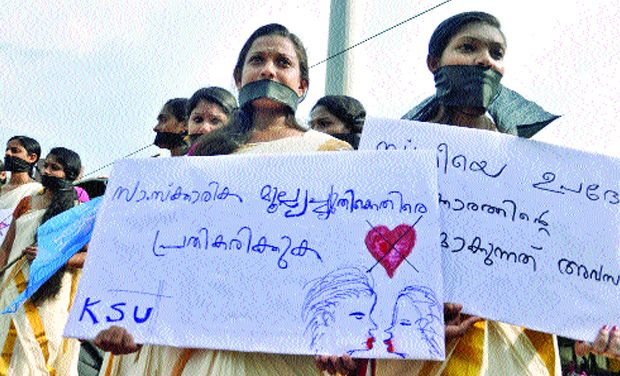 സാംസ്കാരിക മൂല്യച്യുതിക്കെതിരെ
പ്രതികരിക്കുക
KSU
സ്ത്രീയെ ഉപദേ
കാരത്തിന്റെ
മാകുന്നത് അവസ